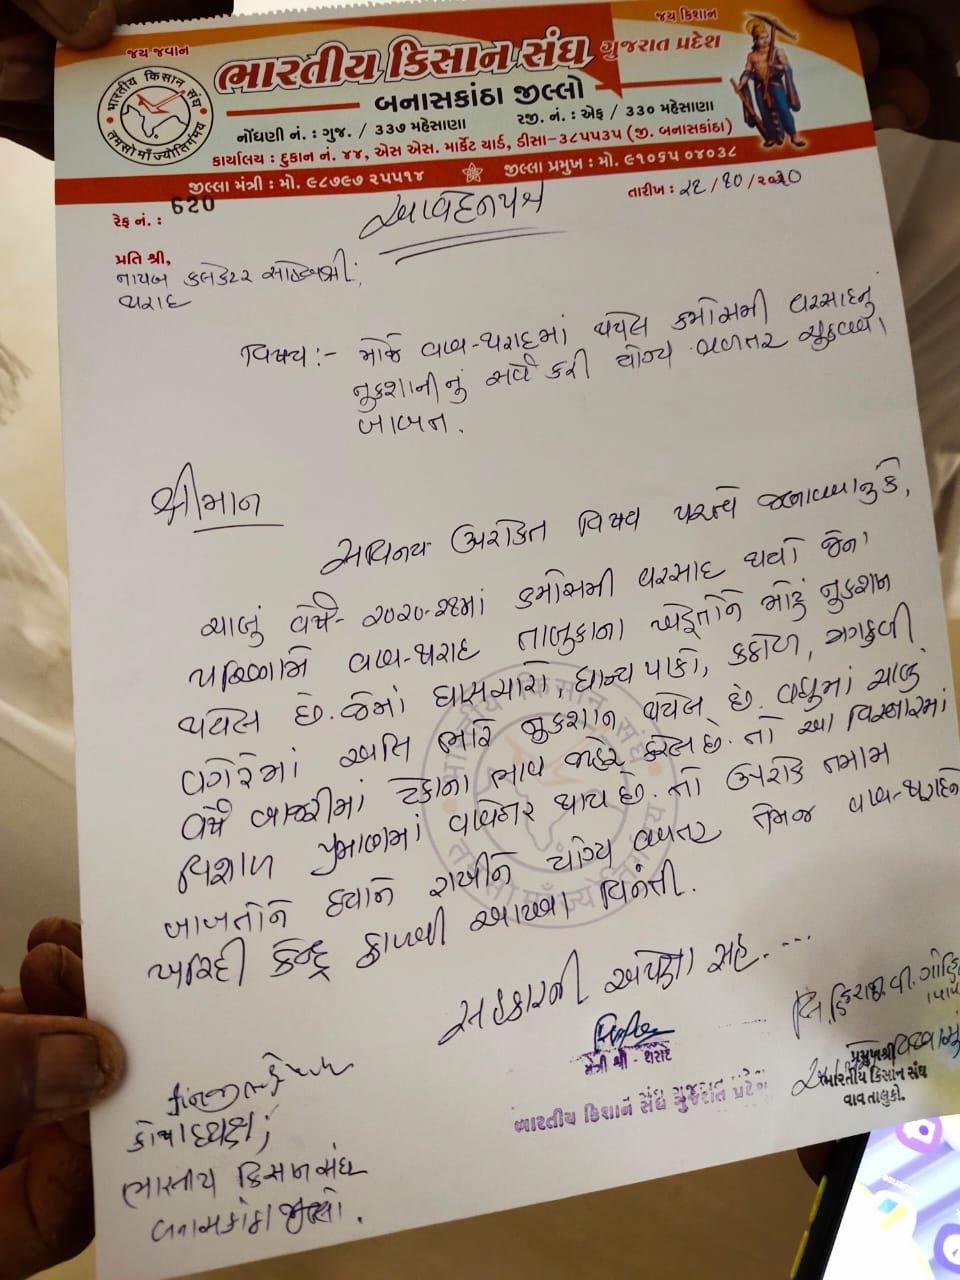 જય જવાન
જય કિશાન
ભારતીય કિસાન સંઘ ગુજરાત પ્રદેશ
બનાસકાંઠા જીલ્લો
ભારતીય કિસાન સંઘ
તમસો માઁ જ્યોતિર્ગમય
નોંધણી નં. : ગુજ. / ૩૩૭ મહેસાણા રજી. નં. : એફ / ૩૩૦ મહેસાણા
કાર્યાલય : દુકાન નં. ૪૪, એસ એસ. માર્કેટ યાર્ડ, ડીસા-૩૮૫૫૩૫ (જી. બનાસકાંઠા)
જીલ્લા મંત્રી : મો. ૯૮૭૯૭ ૨૫૫૧૪ જીલ્લા પ્રમુખ : મો. ૯૧૦૬૫ ૦૪૦૩૮
રેફ નં. : 620
તારીખ :
આવેદનપત્ર
પ્રતિ શ્રી,
નાયબ કલેકટર સાહેબશ્રી,
થરાદ
વિષય :- મોજે વાવ-થરાદમાં થયેલ કમોસમી વરસાદનું
નુકશાનીનું સર્વે કરી યોગ્ય વળતર ચુકવવા
બાબત.
શ્રીમાન
સવિનય ઉપરોક્ત વિષય પરત્વે જણાવવાનું કે,
ચાલું વર્ષે- ૨૦૨૦-૨૧માં કમોસમી વરસાદ થયો જેના
પરિણામે વાવ-થરાદ તાલુકાના ખેડૂતોને મોટું નુકશાન
થયેલ છે. જેમાં ઘાસચારો, ધાન્ય પાકો, કઠોળ, મગફળી
વગેરેમાં અતિ ભારે નુકશાન થયેલ છે. વધુમાં ચાલું
વર્ષે બાજરીમાં ટેકાના ભાવ જાહેર કરેલ છે. તો આ વિસ્તારમાં
વિશાળ પ્રમાણમાં વાવેતર થાય છે. તો ઉપરોક્ત તમામ
બાબતોને ધ્યાને રાખીને યોગ્ય વળતર તેમજ વાવ-થરાદને
ખરિદી કેન્દ્ર ફાળવી આપવા વિનંતી.
સહકારની અપેક્ષા સહ. ...
મંત્રી શ્રી - થરાદ
ભારતીય કિશાન સંઘ ગુજરાત પ્રદેશ
પ્રમુખશ્રી
ભારતીય કિસાન સંઘ
વાવ તાલુકો.
કોષાધ્યક્ષ,
ભારતીય કિસાન સંઘ
બનાસકાંઠા જીલ્લો.